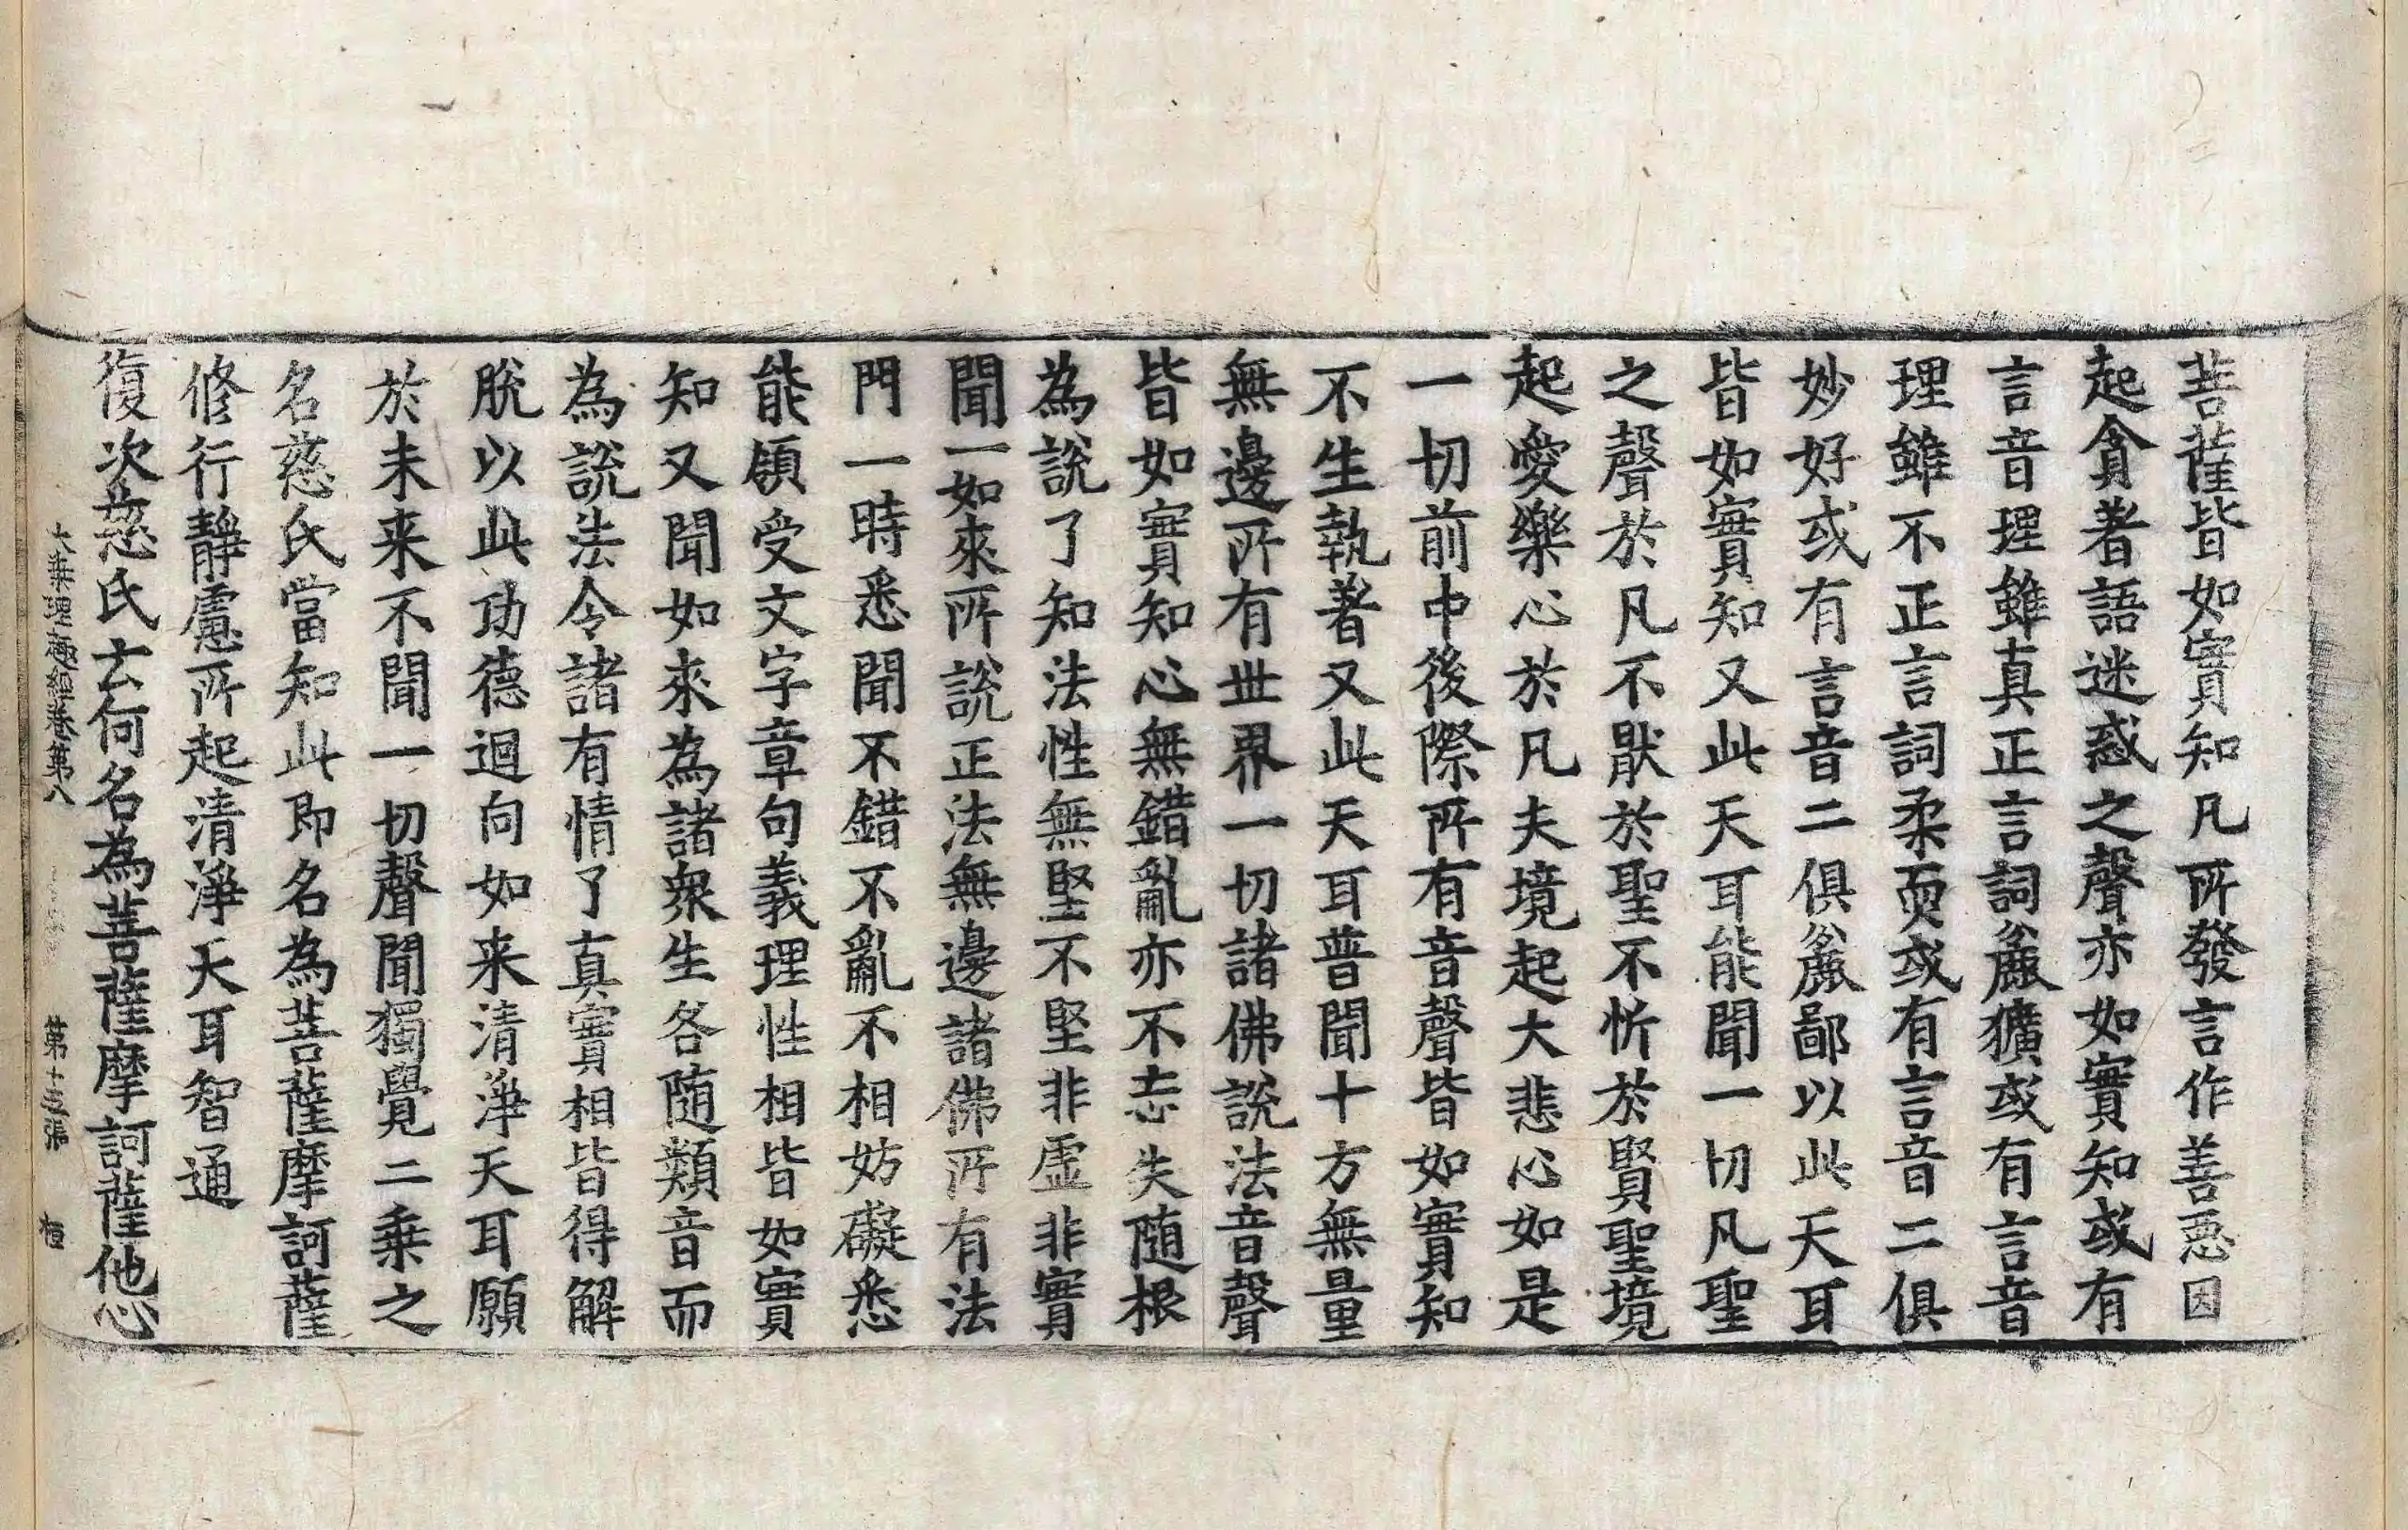 菩薩皆如實知凡所發言作善惡因
起貪著語迷惑之聲亦如實知或有
言音理雖真正言詞麁獷或有言音
理雖不正言詞柔耎或有言音二俱
妙好或有言音二俱麁鄙以此天耳
皆如實知又此天耳能聞一切凡聖
之聲於凡不猒於聖不忻於賢聖境
起愛樂心於凡夫境起大悲心如是
一切前中後際所有音聲皆如實知
不生執著又此天耳普聞十方無量
無邊所有世界一切諸佛說法音聲
皆如實知心無錯亂亦不忘失随根
為說了知法性無堅不堅非虛非實
聞一如來所說正法無邊諸佛所有法
門一時悉聞不錯不亂不相妨礙悉
能領受文字章句義理性相皆如實
知又聞如來為諸衆生各随類音而
為說法令諸有情了真實相皆得解
脫以此功德迴向如来清淨天耳願
於未来不聞一切聲聞獨覺二乘之
名慈氏當知此即名為菩薩摩訶薩
修行靜慮所起清淨天耳智通
復次慈氏云何名為菩薩摩訶薩他心
大乘理趣經卷第八 第十五張 桓